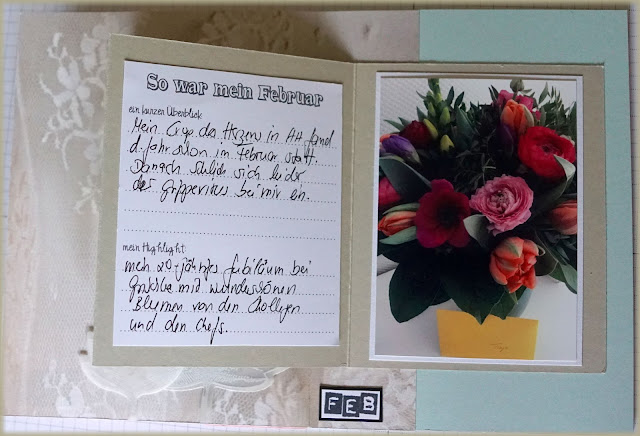 So war mein Februar
ein kurzer Überblick
Mein Crop des Herzens in AH fand
d. Jahr schon im Februar statt.
Danach schlich sich leider
der Grippevirus bei mir ein.
mein Highlight
mein 20-jähriges Jubiläum bei
mit wunderschönen
Blumen von den Kollegen
und den Chefs.
FEB